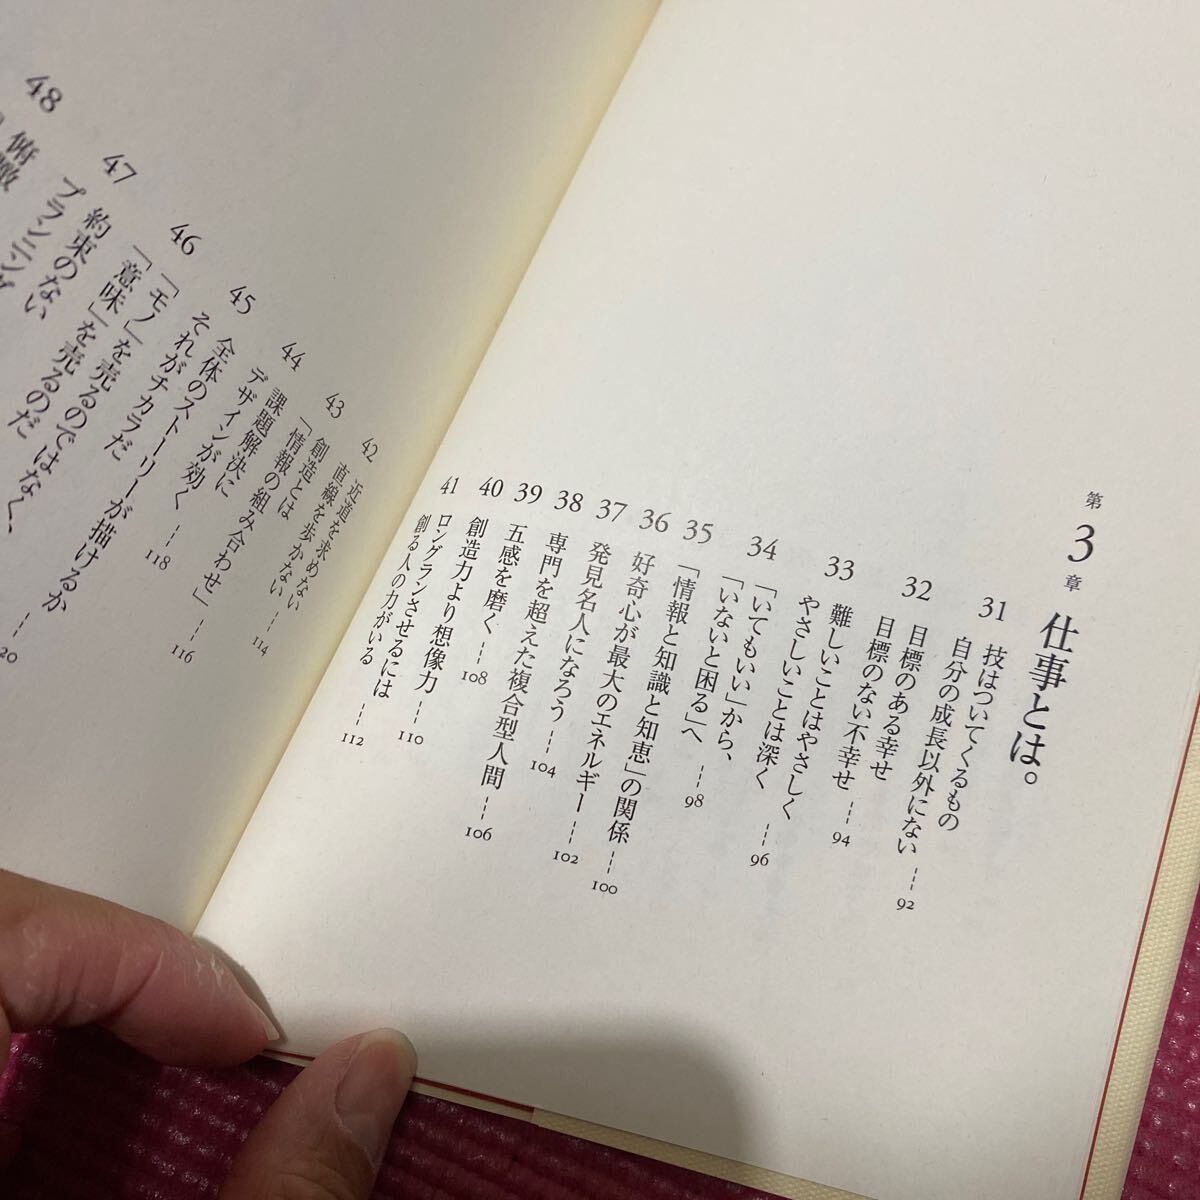 第3章 仕事とは。
31 技はついてくるもの
自分の成長以外にない --- 92
32 目標のある幸せ
目標のない不幸せ --- 94
33 難しいことはやさしく
やさしいことは深く --- 96
34 「いてもいい」から、
「いないと困る」へ --- 98
35 「情報と知識と知恵」の関係 --- 100
36 好奇心が最大のエネルギー --- 102
37 発見名人になろう --- 104
38 専門を超えた複合型人間 --- 106
39 五感を磨く --- 108
40 創造力より想像力 --- 110
41 ロングランさせるには
創る人の力がいる --- 112
42 近道を求めない
直線を歩かない --- 114
43 創造とは
「情報の組み合わせ」 --- 116
44 課題解決に
デザインが効く --- 118
45 全体のストーリーが描けるか
それがチカラだ --- 120
46 「モノ」を売るのではなく、
「意味」を売るのだ
47 約束のない
プランニング
48 俯瞰